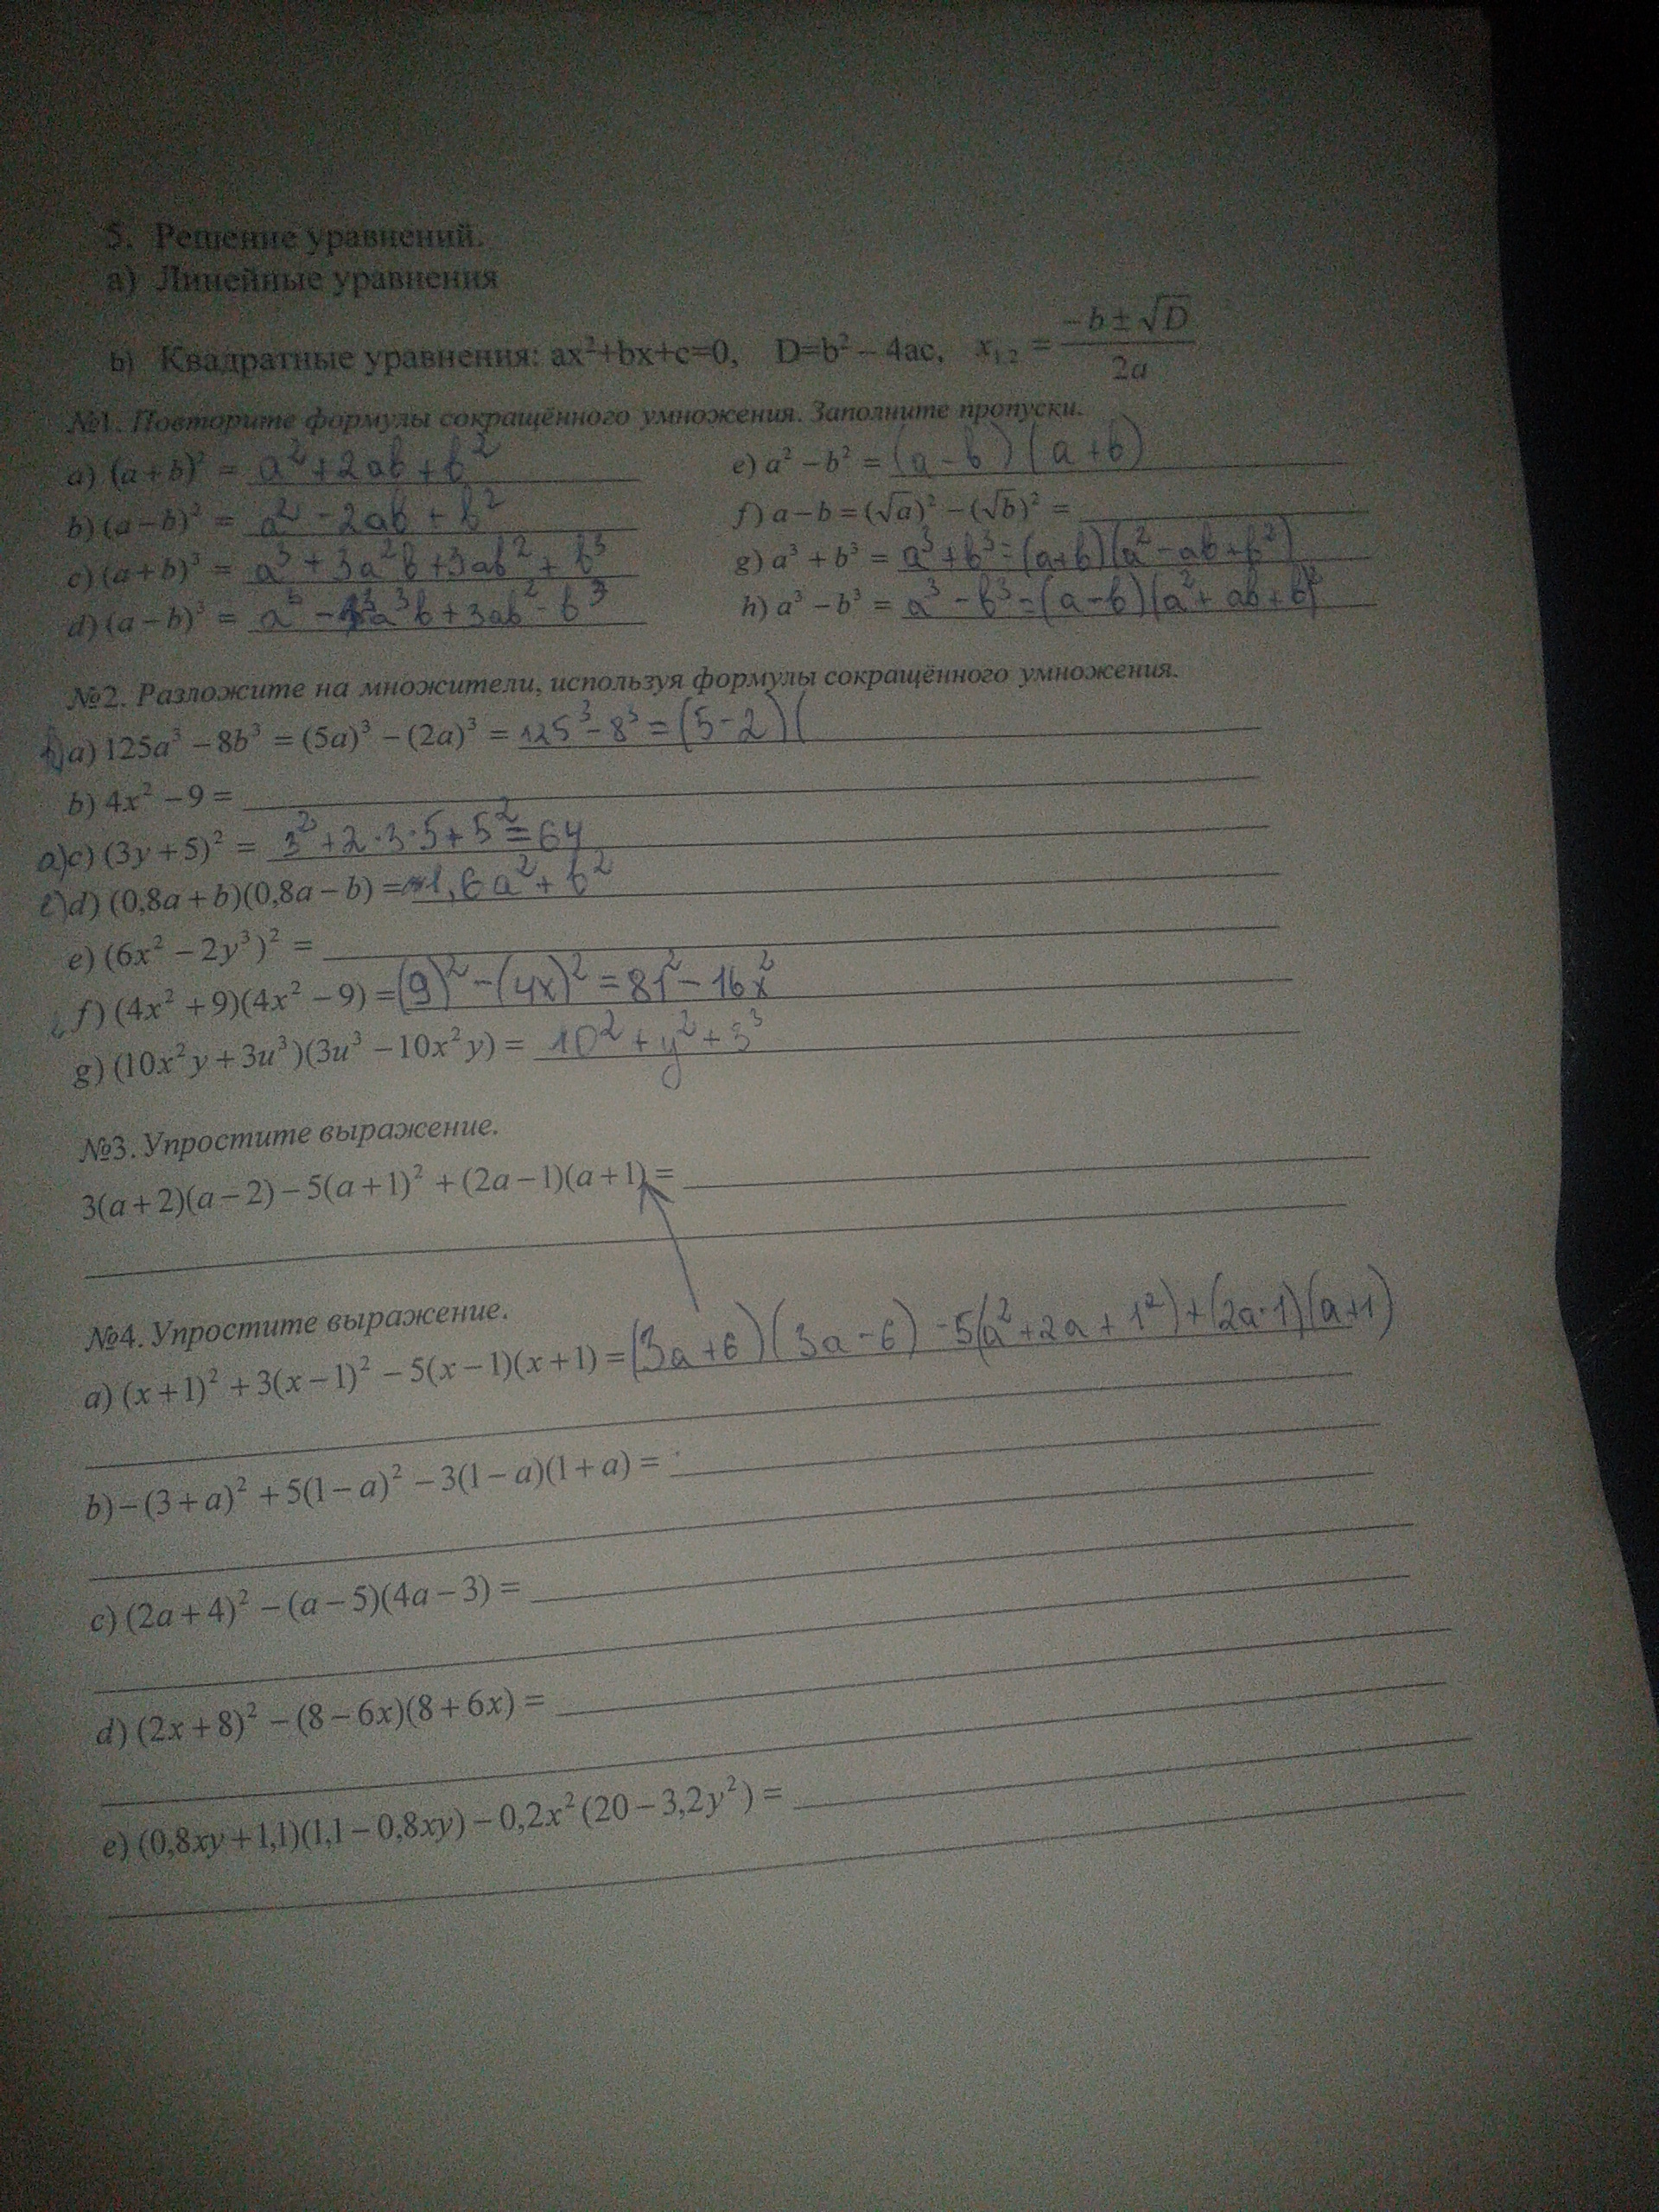 5. Решение уравнений.
a) Линейные уравнения
b) Квадратные уравнения: ax²+bx+c=0, D=b² – 4ac, x₁,₂ = (−b ± √D)/2a
№1. Повторите формулы сокращённого умножения. Заполните пропуски.
a) (a+b)² = a² + 2ab + b²
e) a² − b² = (a − b)(a + b)
b) (a−b)² = a² − 2ab + b²
f) a − b = (√a)² − (√b)² =
c) (a+b)³ = a³ + 3a²b + 3ab² + b³
g) a³ + b³ = a³ + b³ = (a+b)(a² − ab + b²)
d) (a−b)³ = a³ − a³b + 3ab² − b³
h) a³ − b³ = a³ − b³ = (a−b)(a² + ab + b)²
№2. Разложите на множители, используя формулы сокращённого умножения.
a) 125a³ − 8b³ = (5a)³ − (2a)³ = 125³ − 8³ = (5−2)(
b) 4x² − 9 =
a) c) (3y + 5)² = 3² + 2·3·5 + 5² = 64
d) (0,8a + b)(0,8a − b) = 1,6a² + b²
e) (6x² − 2y³)² =
f) (4x² + 9)(4x² − 9) = (9)² − (4x)² = 81² − 16x²
g) (10x²y + 3u³)(3u³ − 10x²y) = 10² + y² + 3³
№3. Упростите выражение.
3(a + 2)(a − 2) − 5(a + 1)² + (2a − 1)(a + 1) =
№4. Упростите выражение.
a) (x + 1)² + 3(x − 1)² − 5(x − 1)(x + 1) = (3a + 6)(3a − 6) − 5(a² + 2a + 1²) + (2a·1)(a+1)
b) − (3 + a)² + 5(1 − a)² − 3(1 − a)(1 + a) =
c) (2a + 4)² − (a − 5)(4a − 3) =
d) (2x + 8)² − (8 − 6x)(8 + 6x) =
e) (0,8xy + 1,1)(1,1 − 0,8xy) − 0,2x²(20 − 3,2y²) =